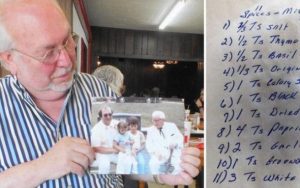 11
Spices - Mix
1) ⅔ Ts Salt
2) ½ Ts Thyme
3) ½ Ts Basil
4) ⅓ Ts Origin
5) 1 Ts Celery
6) 1 Ts Black
7) 1 Ts Dried
8) 4 Ts Papri
9) 2 Ts Garli
10) 1 Ts Ground
11) 3 Ts White